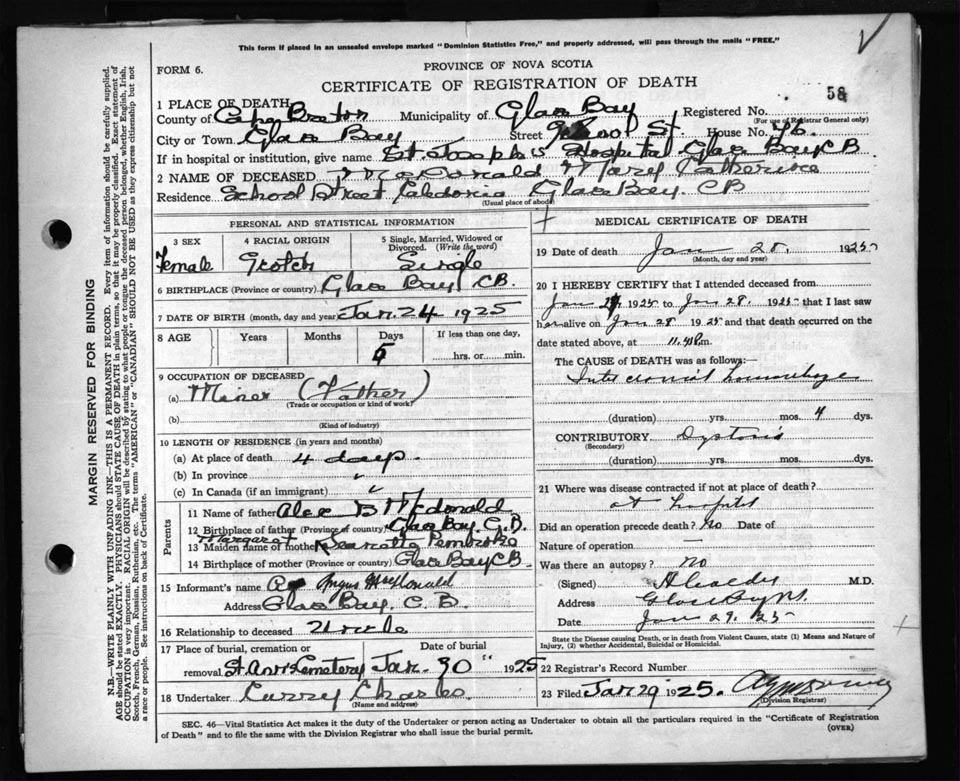 This form if placed in an unsealed envelope marked "Dominion Statistics Free," and properly addressed, will pass through the mails "FREE."
FORM 6.
PROVINCE OF NOVA SCOTIA
CERTIFICATE OF REGISTRATION OF DEATH
58
1 PLACE OF DEATH
County of Cape Breton Municipality of Glace Bay Registered No.
(For use of Registrar General only)
City or Town Glace Bay Street School St. House No. 46.
If in hospital or institution, give name St. Joseph's Hospital Glace Bay CB
2 NAME OF DECEASED McDonald Mary Catherine
Residence School Street Caledonia Glace Bay. CB
(Usual place of abode)
PERSONAL AND STATISTICAL INFORMATION
3 SEX Female
4 RACIAL ORIGIN Scotch
5 Single, Married, Widowed or Divorced. (Write the word) Single
6 BIRTHPLACE (Province or country) Glace Bay CB
7 DATE OF BIRTH (month, day and year) Jan. 24 1925
8 AGE Years Months Days If less than one day, hrs. or min.
9 OCCUPATION OF DECEASED
(a) Miner (Father)
(Trade or occupation or kind of work)
(b)
(Kind of industry)
10 LENGTH OF RESIDENCE (in years and months)
(a) At place of death 4 days.
(b) In province "
(c) In Canada (if an immigrant) "
Parents
11 Name of father Alex B McDonald
12 Birthplace of father (Province or country) Glace Bay C.B.
Margaret
13 Maiden name of mother Pembroke
14 Birthplace of mother (Province or country) Glace Bay CB
15 Informant's name Angus MacDonald
Address Glace Bay. C. B.
16 Relationship to deceased Uncle
17 Place of burial, cremation or removal Date of burial
St. Ann Cemetery Jan. 30 1925
18 Undertaker Curry Charles
(Name and address)
MEDICAL CERTIFICATE OF DEATH
19 Date of death Jan 28. 1925
(Month, day and year)
20 I HEREBY CERTIFY that I attended deceased from
Jan 1925 to Jan 28. 1925 that I last saw
her alive on Jan 28 1925 and that death occurred on the
date stated above, at 11. pm.
The CAUSE OF DEATH was as follows:—
hemorrhage
(duration) yrs. mos. 4 dys.
CONTRIBUTORY
(Secondary)
(duration) yrs. mos. dys.
21 Where was disease contracted if not at place of death?
at hospital
Did an operation precede death? No Date of
Nature of operation —
Was there an autopsy? no
(Signed) M.D.
Address Glace Bay NS.
Date Jan 29. 25
State the Disease causing Death, or in death from Violent Causes, state (1) Means and Nature of Injury, (2) whether Accidental, Suicidal or Homicidal.
22 Registrar's Record Number
23 Filed Jan 29 1925.
(Division Registrar)
SEC. 46—Vital Statistics Act makes it the duty of the Undertaker or person acting as Undertaker to obtain all the particulars required in the "Certificate of Registration
of Death" and to file the same with the Division Registrar who shall issue the burial permit.
(OVER)
MARGIN RESERVED FOR BINDING
N.B—WRITE PLAINLY WITH UNFADING INK—THIS IS A PERMANENT RECORD. Every item of information should be carefully supplied.
AGE should be stated EXACTLY. PHYSICIANS should STATE CAUSE OF DEATH in plain terms, so that it may be properly classified. Exact statement of
OCCUPATION is very important. RACIAL ORIGIN will be described by stating to what people or tongue the deceased person belonged, whether English, Irish,
Scotch, French, German, Russian, Ruthenian, etc. The terms "AMERICAN" or "CANADIAN" SHOULD NOT BE USED as they express citizenship but not
a race or people. See instructions on back of Certificate.